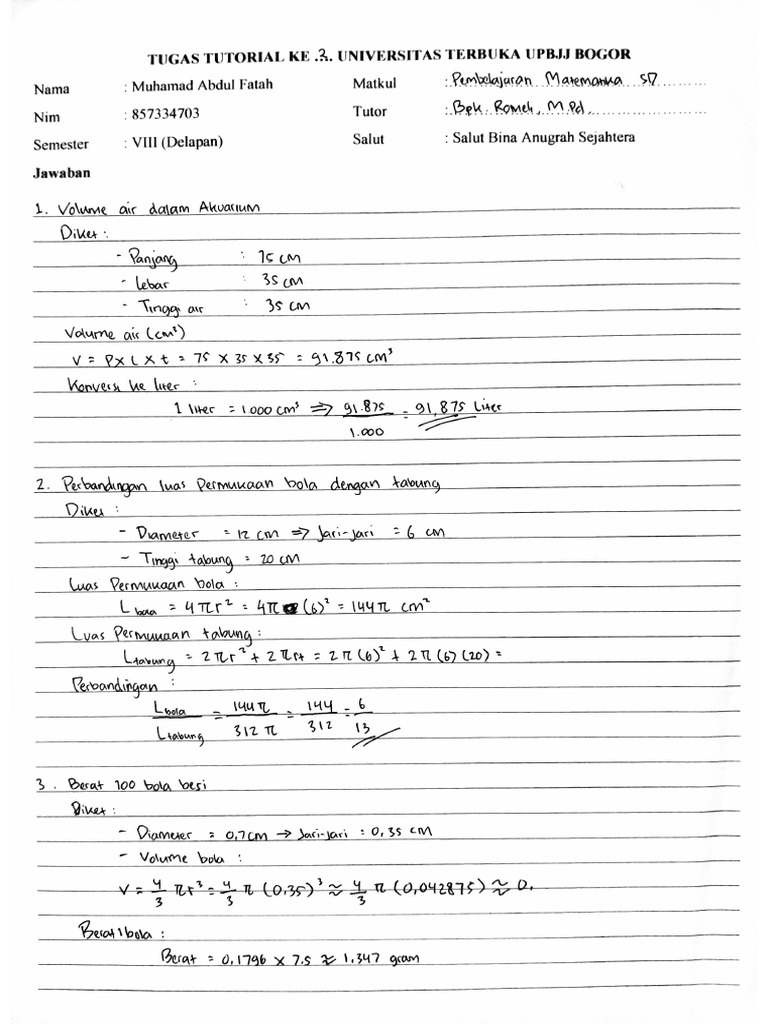 TUGAS TUTORIAL KE .3. UNIVERSITAS TERBUKA UPBJJ BOGOR
Nama : Muhamad Abdul Fatah Matkul : Pembelajaran Matematika SD
Nim : 857334703 Tutor : Bpk. Romeli, M.Pd.
Semester : VIII (Delapan) Salut : Salut Bina Anugrah Sejahtera
Jawaban
1. Volume air dalam Akuarium
Diket :
- Panjang : 75 cm
- Lebar : 35 cm
- Tinggi air : 35 cm
Volume air (cm³)
V = P x L x t = 75 x 35 x 35 = 91.875 cm³
Konversi ke liter :
1 liter = 1.000 cm³ => 91.875 / 1.000 = 91,875 Liter
2. Perbandingan luas Permukaan bola dengan tabung
Diket :
- Diameter = 12 cm => Jari-jari = 6 cm
- Tinggi tabung = 20 cm
Luas Permukaan bola :
L bola = 4πr² = 4π (6)² = 144π cm²
Luas Permukaan tabung :
L tabung = 2πr² + 2πrt = 2π(6)² + 2π(6)(20) =
Perbandingan :
L bola / L tabung = 144π / 312π = 144 / 312 = 6 / 13
3. Berat 100 bola besi
Diket :
- Diameter = 0,7 cm → Jari-jari = 0,35 cm
- Volume bola :
V = 4/3 πr³ = 4/3 π (0,35)³ ≈ 4/3 π (0,042875) ≈ 0,
Berat 1 bola :
Berat = 0,1796 x 7.5 ≈ 1.347 gram